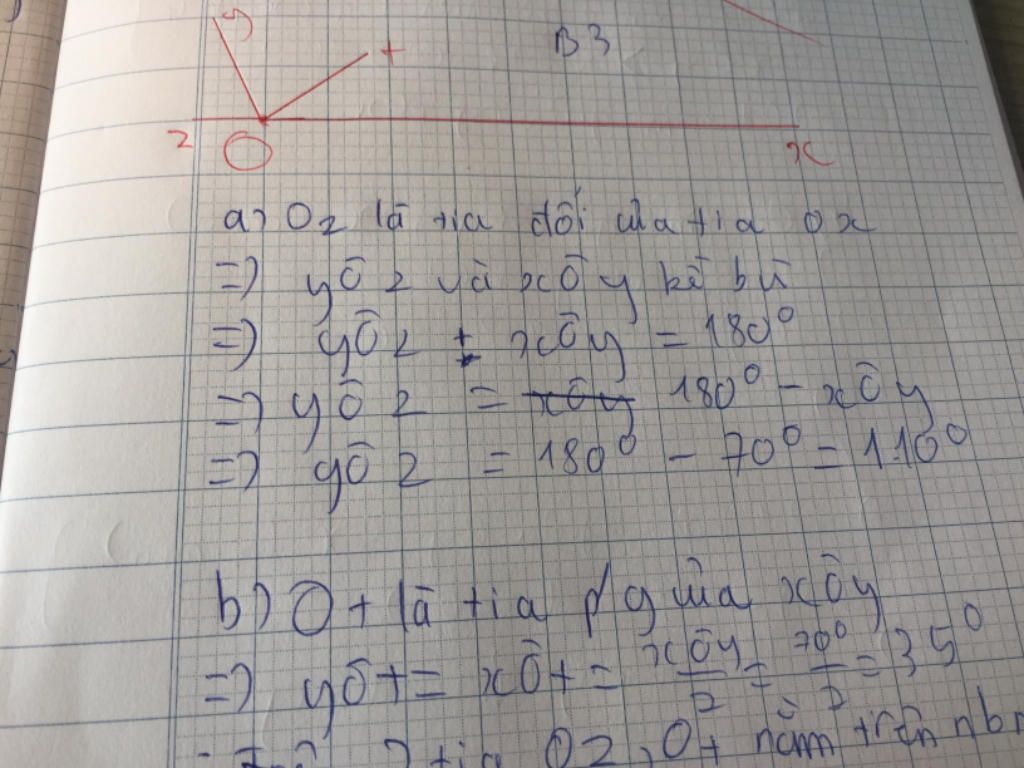 y t B3
z O x
a) Oz là tia đối của tia Ox
=> yÔz và xÔy kề bù
=> yÔz + xÔy = 180°
=> yÔz = xÔy 180° - xÔy
=> yÔz = 180° - 70° = 110°
b) Ot là tia p/g của xÔy
=> yÔt = xÔt = xÔy/2 = 70°/2 = 35°
tia Oz, Ot nằm trên nb